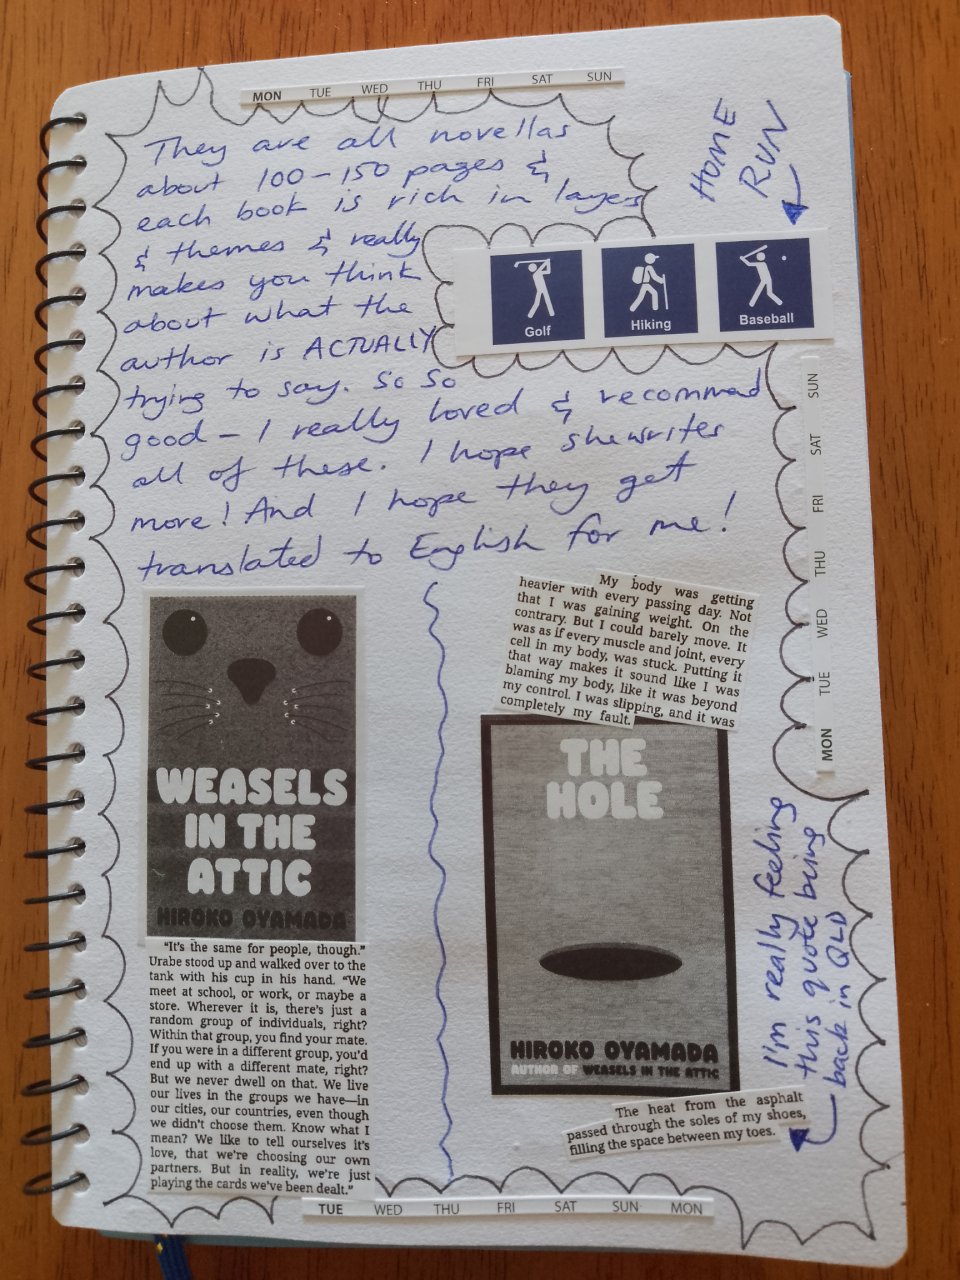 MON TUE WED THU FRI SAT SUN
They are all novellas
about 100-150 pages &
each book is rich in layers
& themes & really
makes you think
about what the
author is ACTUALLY
trying to say. So So
good - I really loved & recommend
all of these. I hope she writes
more! And I hope they get
translated to English for me!
HOME
RUN
Golf
Hiking
Baseball
SUN SAT FRI THU WED TUE MON
WEASELS
IN THE
ATTIC
HIROKO OYAMADA
"It's the same for people, though."
Urabe stood up and walked over to the
tank with his cup in his hand. "We
meet at school, or work, or maybe a
store. Wherever it is, there's just a
random group of individuals, right?
Within that group, you find your mate.
If you were in a different group, you'd
end up with a different mate, right?
But we never dwell on that. We live
our lives in the groups we have—in
our cities, our countries, even though
we didn't choose them. Know what I
mean? We like to tell ourselves it's
love, that we're choosing our own
partners. But in reality, we're just
playing the cards we've been dealt."
My body was getting
heavier with every passing day. Not
that I was gaining weight. On the
contrary. But I could barely move. It
was as if every muscle and joint, every
cell in my body, was stuck. Putting it
that way makes it sound like I was
blaming my body, like it was beyond
my control. I was slipping, and it was
completely my fault.
THE
HOLE
HIROKO OYAMADA
AUTHOR OF WEASELS IN THE ATTIC
I'm really feeling
this quote being
back in QLD
The heat from the asphalt
passed through the soles of my shoes,
filling the space between my toes.
TUE WED THU FRI SAT SUN MON